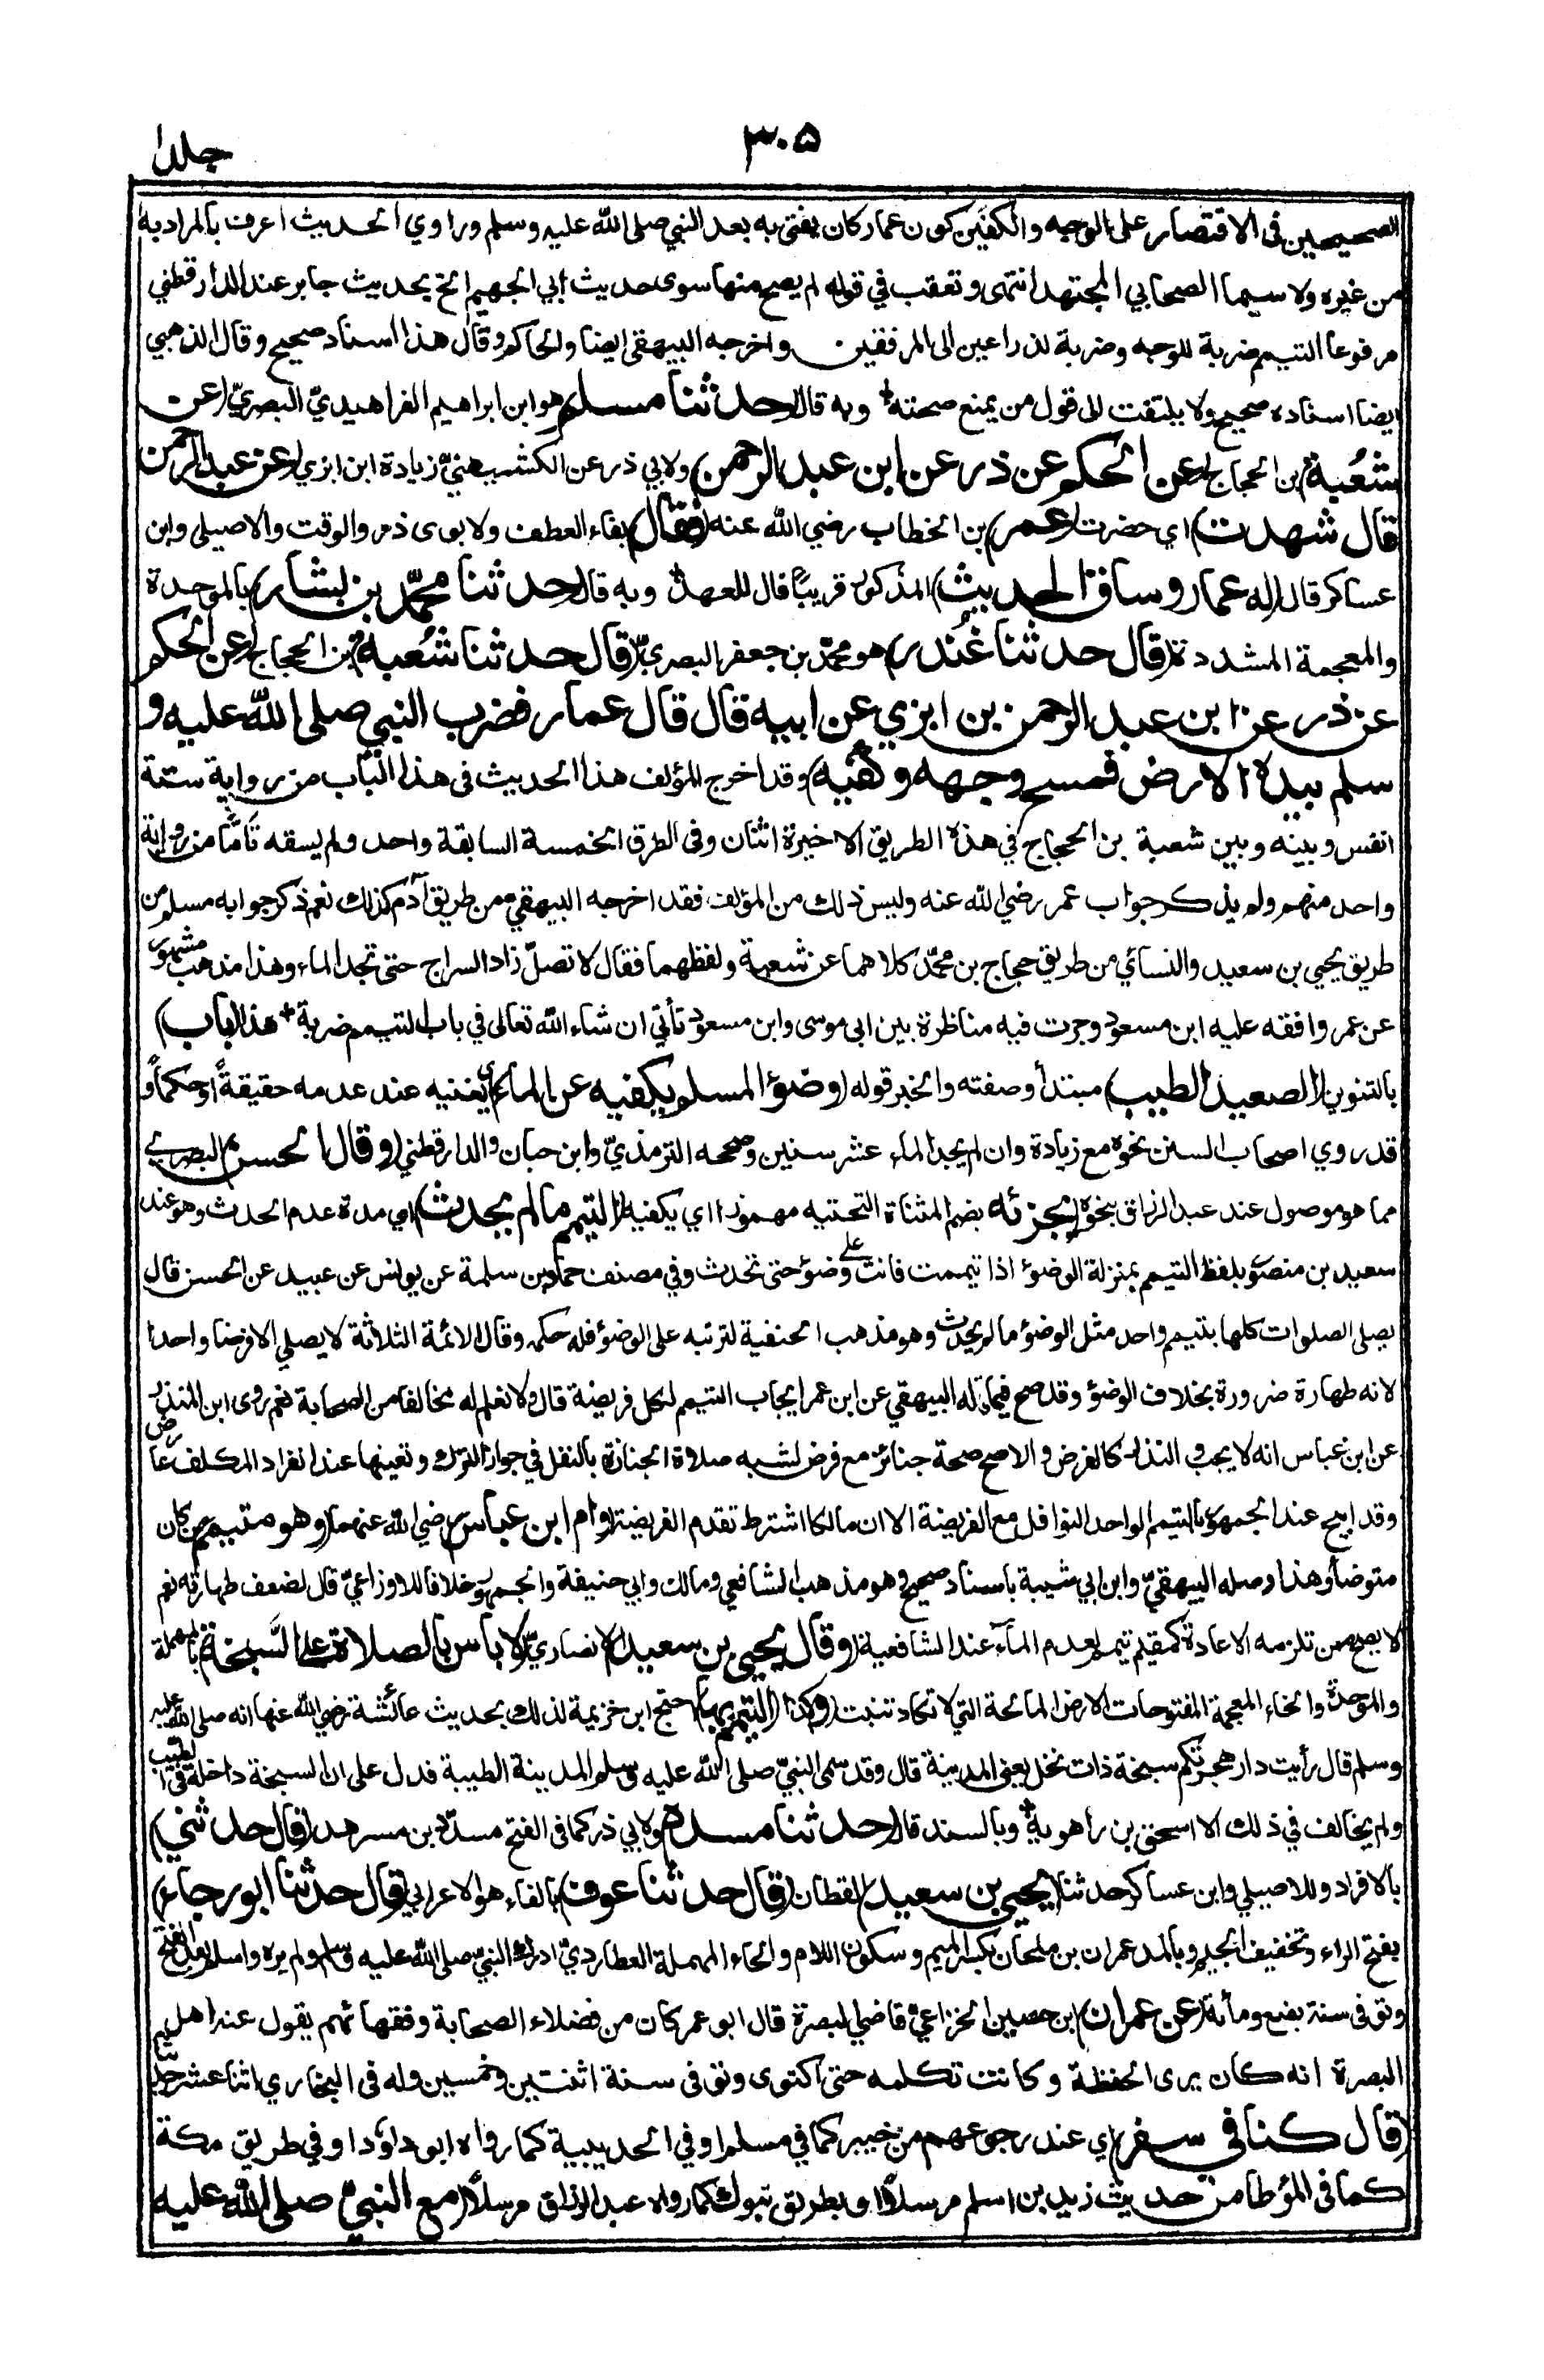 ٣٠٥
جلد ١
الصحيحين فى الاقتصار على الوجه والكفين كون عمار كان يفتى به بعد النبي صلى الله عليه وسلم وراوي الحديث اعرف بالمراد به
من غيره ولا سيما الصحابي المجتهد انتهى وتعقب في قوله لم يصح منها سوى حديث أبي الجهيم الخ بحديث جابر عند الدارقطني
مرفوعا التيمم ضربة للوجه وضربة لذراعين الى المرفقين واخرجه البيهقى ايضا والحاكم وقال هذا اسناد صحيح وقال الذهبي
ايضا اسناده صحيح ولا يلتفت الى قول من يمنع صحته + وبه قال (حدثنا مسلم) هو ابن ابراهيم الفراهيديّ البصريّ (عن
شعُبة) بن الحجاج (عن الحكم عن ذر عن ابن عبد الرحمن) ولابي ذر عن الكشميهنيّ زيادة ابن ابزي (عن عبد الرحمن
قال شهدت) اي حضرت (عمر) بن الخطاب رضي الله عنه (فقال) بفاء العطف ولابوى ذر والوقت والاصيلى وابن
عساكر قال (له عمار وساق الحديث) المذكور قريبًا فال للعهد + وبه قال (حدثنا محمّد بن بشار) بالموحدة
والمعجمة المشددة (قال حدثنا غُندر) هو محمّد بن جعفر البصريّ (قال حدثنا شعُبة) بن الحجاج (عن الحكم
عن ذر عن ابن عبد الرحمن بن ابزي عن ابيه قال قال عمار فضرب النبي صلى الله عليه و
سلم بيده الارض فمسح وجهه وكفيه) وقد اخرج المؤلف هذا الحديث فى هذا الباب من رواية ستة
انفس وبينه وبين شعبة بن الحجاج في هذه الطريق الاخيرة اثنان وفى الطرق الخمسة السابقة واحد ولم يسقه تَامًّا من رواية
واحد منهم ولم يذكر جواب عمر رضي الله عنه وليس ذلك من المؤلف فقد اخرجه البيهقيّ من طريق آدم كذلك نعم ذكر جوابه مسلم من
طريق يحيي بن سعيد والنسائي من طريق حجاج بن محمّد كلاهما عن شعبة ولفظهما فقال لا تصلّ زاد السراج حتى تجد الماء وهذا مذهب مشهور
عن عمر وافقه عليه ابن مسعود وجرت فيه مناظرة بين ابى موسى وابن مسعود تأتي ان شاء الله تعالى في باب التيمم ضربة + هذا (باب)
بالتنوين (الصعيد الطيب) مبتدأ وصفته والخبر قوله (وضؤ المسلم يكفيه عن الماء) اي يغنيه عند عدمه حقيقةً او حكماً و
قد روي اصحاب السنن نحوه مع زيادة وان لم يجد الماء عشر سنين وصححه الترمذيّ وابن حبان والدارقطني (وقال الحسن) البصرے
مما هو موصول عند عبد الرزاق بنحوه (يجزئه) بضم المثناة التحتيه مهموزا اي يكفيه (التيمم ما لم يحدث) اي مدة عدم الحدث وهو عند
سعيد بن منصور بلفظ التيمم بمنزلة الوضؤ اذا تيممت فانت على وضؤ حتى تحدث وفي مصنف حماد بن سلمة عن يونس عن عبيد عن الحسن قال
يصلى الصلوات كلها بتيمم واحد مثل الوضؤ ما لم يحدث وهو مذهب الحنفية لترتبه على الوضؤ فله حكمه وقال الائمة الثلاثة لا يصلي الا فرضا واحدا
لانه طهارة ضرورة بخلاف الوضؤ وقد صح فيما قاله البيهقي عن ابن عمر ايجاب التيمم لكل فريضة قال ولا نعلم له مخالفا من الصحابة نعم روى ابن المنذر
عن ابن عباس انه لا يجب والنذر كالفرض والاصح صحة جنائز مع فرض لشبه صلاة الجنازة بالنفل في جواز الترك وتعينها عند انفراد المكلف عارض
وقد ابيح عند الجمهور بالتيمم الواحد النوافل مع الفريضة الا ان مالكا اشترط تقدم الفريضة (وام ابن عباس) رضي الله عنهما (وهو متيمم) من كان
متوضأ وهذا وصله البيهقيّ وابن ابي شيبة باسناد صحيح وهو مذهب الشافعي ومالك وابي حنيفة والجمهور خلافا للاوزاعيّ قال لضعف طهارته نعم
لا يصح ممن تلزمه الاعادة كمقيم تيمم لعدم الماء عند الشافعية (وقال يحيى بن سعيد) الانصاريّ (لا باس بالصلاة على السَّبخة) بالمهملة
والموحدة والخاء المعجمة المفتوحات الارض المالحة التي لا تكاد تنبت (و) كذا (التيمم بها) احتج ابن خزيمة لذلك بحديث عائشة رضي الله عنها انه صلى الله عليه
وسلم قال رأيت دار هجرتكم سبخة ذات نخل يعنى المدينة قال وقد سمى النبيّ صلى الله عليه وسلم المدينة الطيبة فدل على ان السبخة داخلة فى الطيب
ولم يخالف في ذلك الا اسحق بن راهويه + وبالسند قال (حدثنا مسدد) ولابي ذر كما فى الفتح مسدّد بن مسرهد (قال حدثني)
بالافراد وللاصيلي وابن عساكر حدثنا (يحيى بن سعيد) القطان (قال حدثنا عوف) بالفاء هو الاعرابي (قال حدثنا ابو رجاء)
بفتح الراء وتخفيف الجيم وبالمد عمران بن ملحان بكسر الميم وسكون اللام والحاء المهملة العطارديّ ادرك النبيّ صلى الله عليه وسلم ولم يره واسلم بعد الفتح
وتوفى سنة بضع ومأئة (عن عمران) ابن حصين الخزاعيّ قاضي البصرة قال ابو عمر كان من فضلاء الصحابة وفقهائهم يقول عنه اهل
البصرة انه كان يرى الحفظة وكانت تكلمه حتى اكتوى وتوفى سنة اثنتين وخمسين وله فى البخاري اثنا عشر حديثا
(قال كنا في سفر) اي عند رجوعهم من خيبر كما في مسلم او في الحديبية كما رواه ابو داؤد او في طريق مكة
كما فى المؤطا من حديث زيد بن اسلم مرسلاً او بطريق تبوك كما رواه عبد الرزاق مرسلاً (مع النبيّ صلى الله عليه